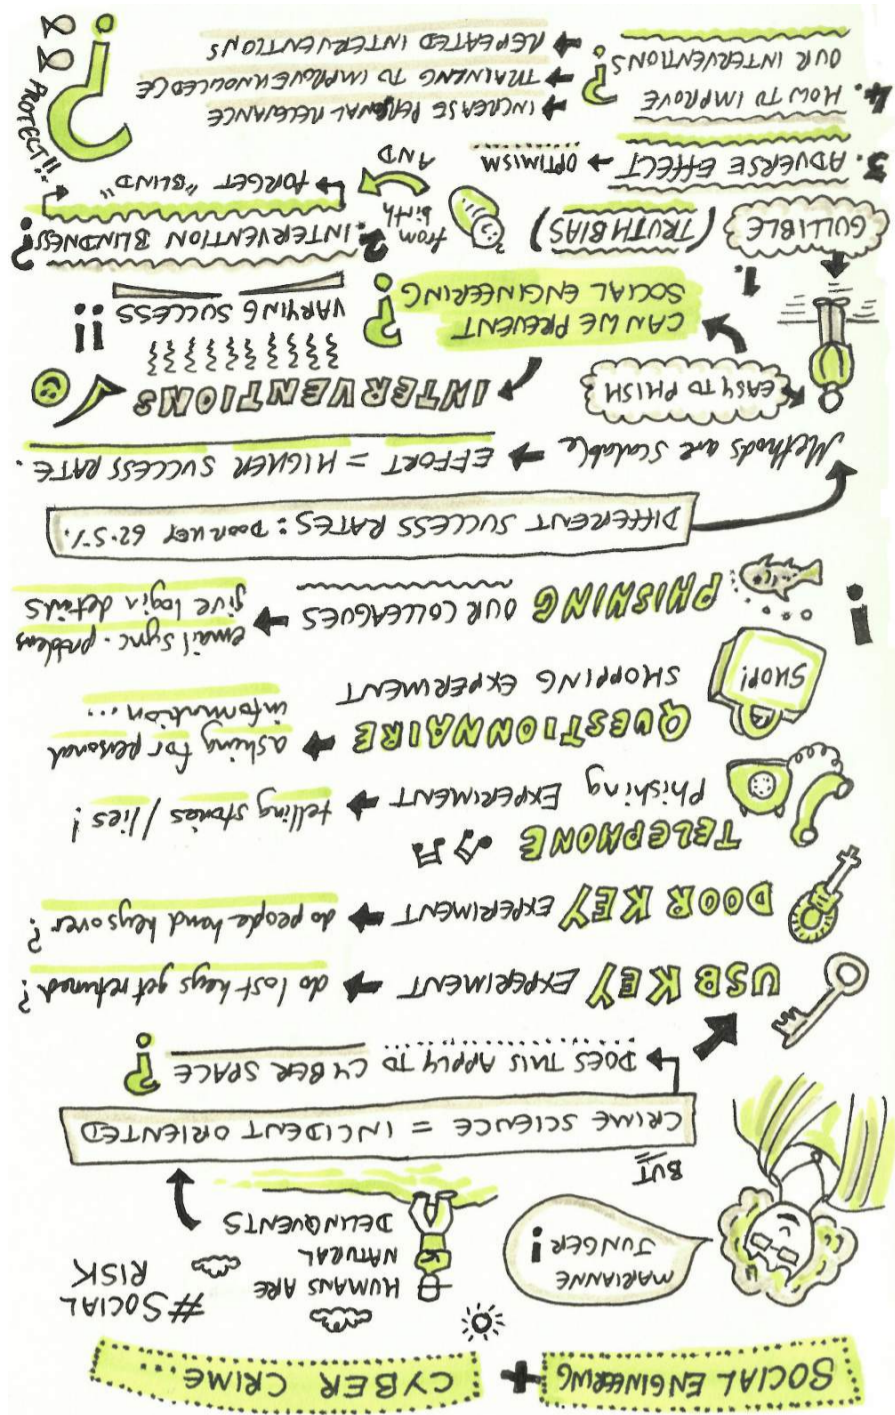 SOCIAL ENGINEERING + CYBER CRIME....
MARIANNE
JUNGER!
HUMANS ARE
NATURAL
DELINQUENTS
#SOCIAL
RISK
BUT
CRIME SCIENCE = INCIDENT ORIENTED
DOES THIS APPLY TO CYBER SPACE ?
USB KEY EXPERIMENT → do lost keys get returned?
DOOR KEY EXPERIMENT → do people hand keys over?
TELEPHONE
Phishing EXPERIMENT → telling stories / lies!
QUESTIONNAIRE → asking for personal
information...
SHOPPING EXPERIMENT
SHOP!
PHISHING OUR COLLEAGUES → email sync. problem
give login details
!
DIFFERENT SUCCESS RATES: DOOR KEY 62.5%.
Methods are scalable → EFFORT = HIGHER SUCCESS RATE.
EASY TO PHISH
CAN WE PREVENT
SOCIAL ENGINEERING ?
INTERVENTIONS
VARYING SUCCESS !!
1.
GULLIBLE (TRUTH BIAS) from
birth
2. INTERVENTION BLINDNESS?
FORGET "BLIND"
AND
3. ADVERSE EFFECT → OPTIMISM
4. HOW TO IMPROVE
OUR INTERVENTIONS ?
→ INCREASE PERSONAL RELEVANCE
→ TRAINING TO IMPROVE KNOWLEDGE
→ REPEATED INTERVENTIONS
PROTECT!!
?